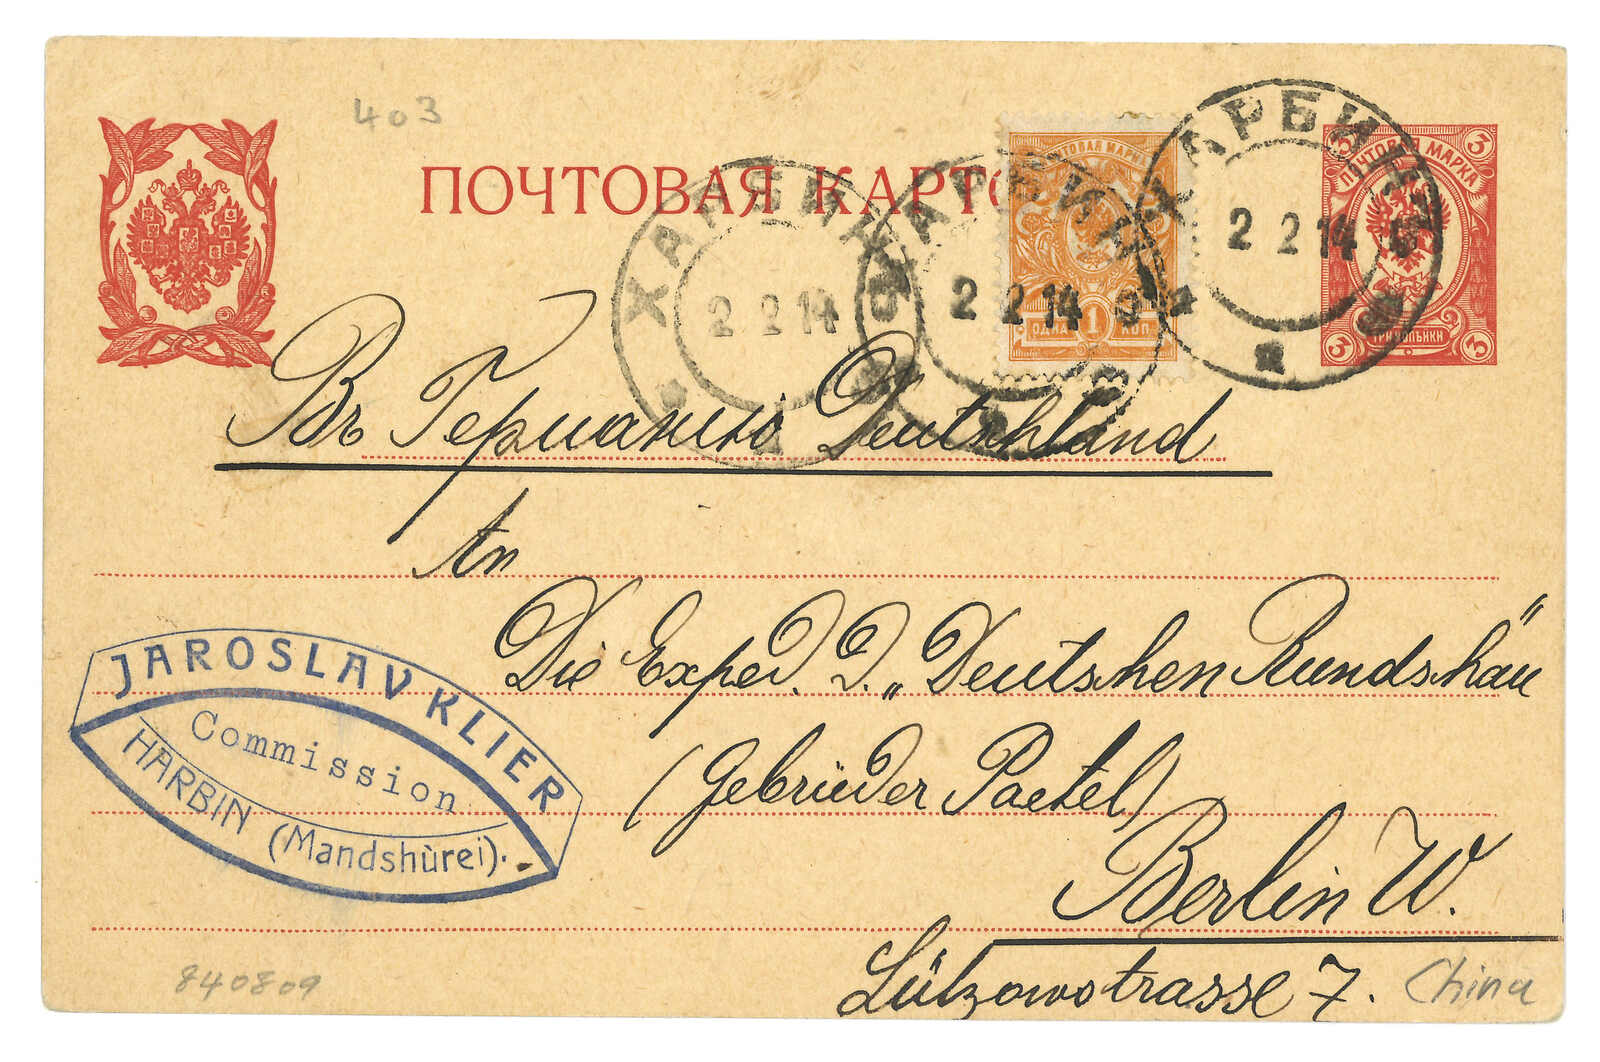 403
ПОЧТОВАЯ КАРТО
ПОЧТОВАЯ МАРКА
ОДНА 1 КОП.
3 3
ПОЧТОВАЯ МАРКА
3 ТРИ КОПѢЙКИ 3
ХАРБИН
2 2 14
ХАРБИН
2 2 14 9
ХАРБИНЪ
2 2 14 9
Въ Германію Deutschland
An
Die Exped. d. „Deutschen Rundschau"
(Gebrüder Paetel)
Berlin W.
Lützowstrasse 7.
JAROSLAV KLIER
Commission
HARBIN (Mandshùrei).
840809
China